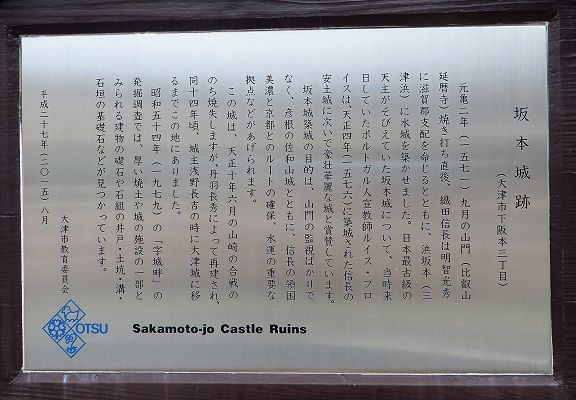 坂本城跡
(大津市下阪本三丁目)
元亀二年(一五七一)九月の山門(比叡山
延暦寺)焼き打ち直後、織田信長は明智光秀
に滋賀郡支配を命じるとともに、浜坂本(三
津浜)に水城を築かせました。日本最古級の
天主がそびえていた坂本城について、当時来
日していたポルトガル人宣教師ルイス・フロ
イスは、天正四年(一五七六)に築城された信長の
安土城に次いで豪壮華麗な城と賞賛しています。
坂本城築城の目的は、山門の監視ばかりで
なく、彦根の佐和山城とともに、信長の領国
美濃と京都とのルートの確保、水運の重要な
拠点などがあげられます。
この城は、天正十年六月の山崎の合戦の
のち焼失しますが、丹羽長秀によって再建され、
同十四年頃、城主浅野長吉の時に大津城に移
るまでこの地にありました。
昭和五十四年(一九七九)の「字城畔」の
発掘調査では、厚い焼土や城の施設の一部と
みられる建物の礎石や石組の井戸・土坑・溝・
石垣の基礎石などが見つかっています。
平成二十七年(二〇一五)八月
大津市教育委員会
OTSU
Sakamoto-jo Castle Ruins